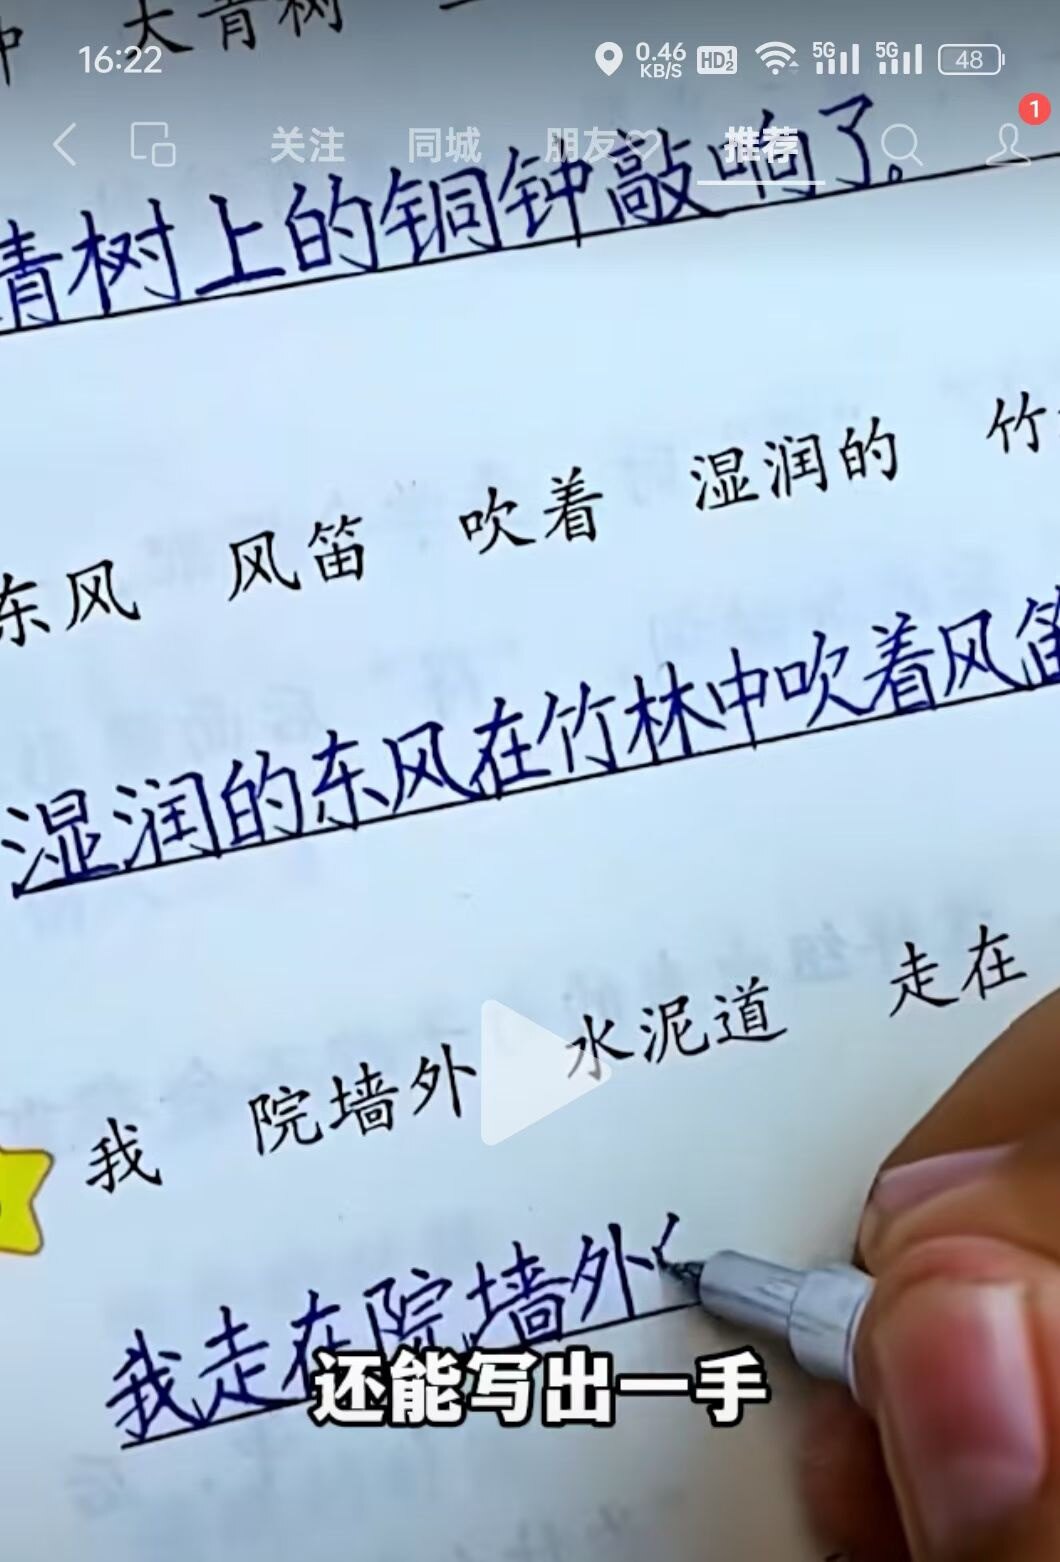 大青树
16:22 0.46 KB/S HD 1 2 5G 5G 48
关注 同城 朋友♡ 推荐 1
青树上的铜钟敲响了。
东风 风笛 吹着 湿润的 竹
湿润的东风在竹林中吹着风笛
我 院墙外 水泥道 走在
我走在院墙外
还能写出一手